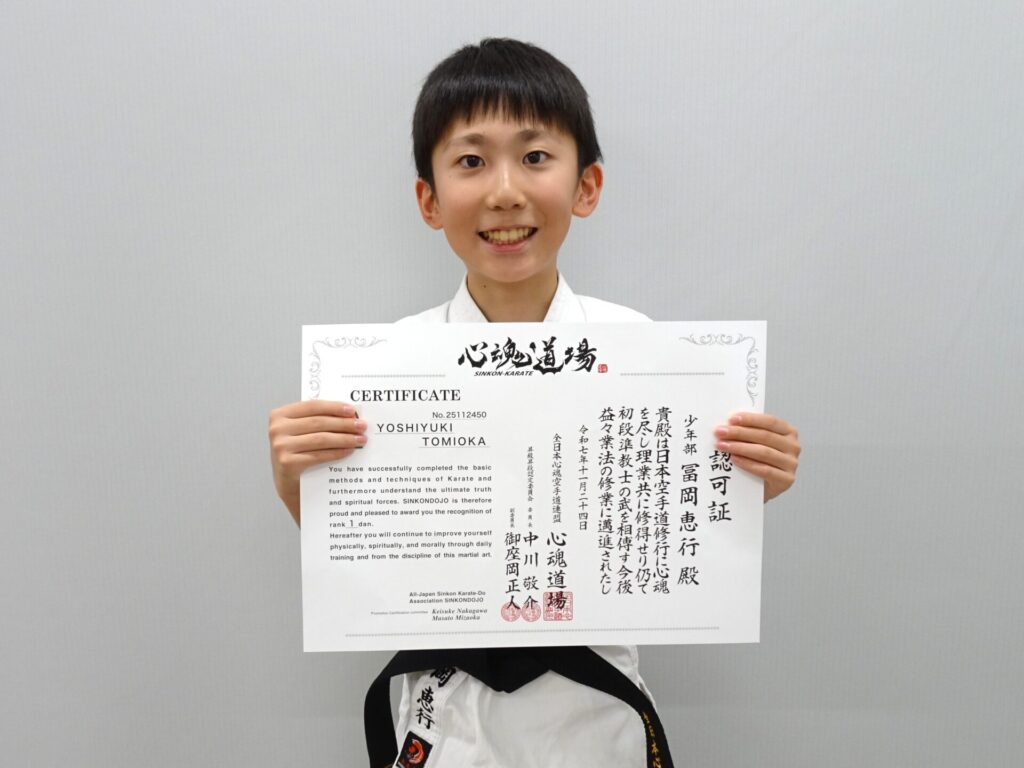 心魂道場
SINKON-KARATE
CERTIFICATE
No.25112450
YOSHIYUKI
TOMIOKA
You have successfully completed the basic
methods and techniques of Karate and
furthermore understand the ultimate truth
and spiritual forces. SINKONDOJO is therefore
proud and pleased to award you the recognition of
rank 1 dan.
Hereafter you will continue to improve yourself
physically, spiritually, and morally through daily
training and from the discipline of this martial art.
All-Japan Sinkon Karate-Do
Association SINKONDOJO
Promotion Certification committee Keisuke Nakagawa
Masato Mizaoka
認可証
少年部 冨岡恵行 殿
貴殿は日本空手道修行に心魂
を尽し理業共に修得せり仍て
初段準教士の武を相傳す今後
益々業法の修業に邁進されたし
令和七年十一月二十四日
全日本心魂空手道連盟 心魂道場
昇級昇段認定委員会 委員長 中川敬介
副委員長 御座岡正人
恵行